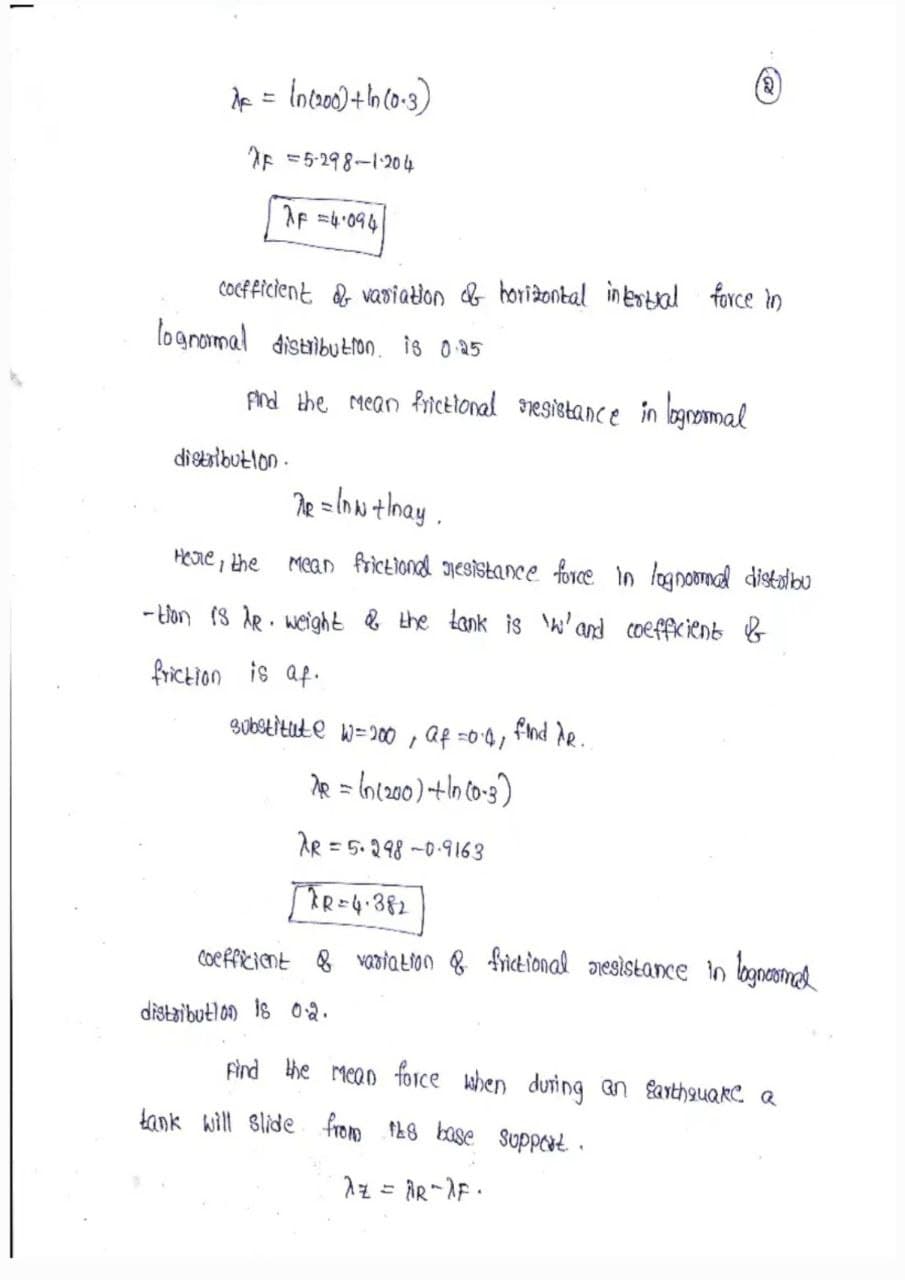 ②
λF = ln(200)+ln(0.3)
λF = 5.298-1.204
λF = 4.094
coefficient of variation of horizontal intertial force in
lognormal distribution. is 0.25
Find the mean frictional resistance in lognormal
distribution.
λR = lnw+lnay.
Here, the mean frictional resistance force in lognormal distribu
-tion is λR. weight of the tank is 'w' and coefficient of
friction is af.
substitute W=200, af=0.4, find λR.
λR = ln(200)+ln(0.3)
λR = 5.298-0.9163
λR = 4.382
coefficient of variation of frictional resistance in lognormal
distribution is 0.2.
Find the mean force when during an Earthquake a
tank will slide from its base support.
λz = λR-λF.